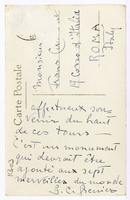 Carte Postale
Monsieur
Franz
19 Corso d'Italia
ROMA
Italy
affectueux sou-
venirs du haut
de ces tours —
C'est un monument
qui devrait être
ajouté aux sept
merveilles du monde